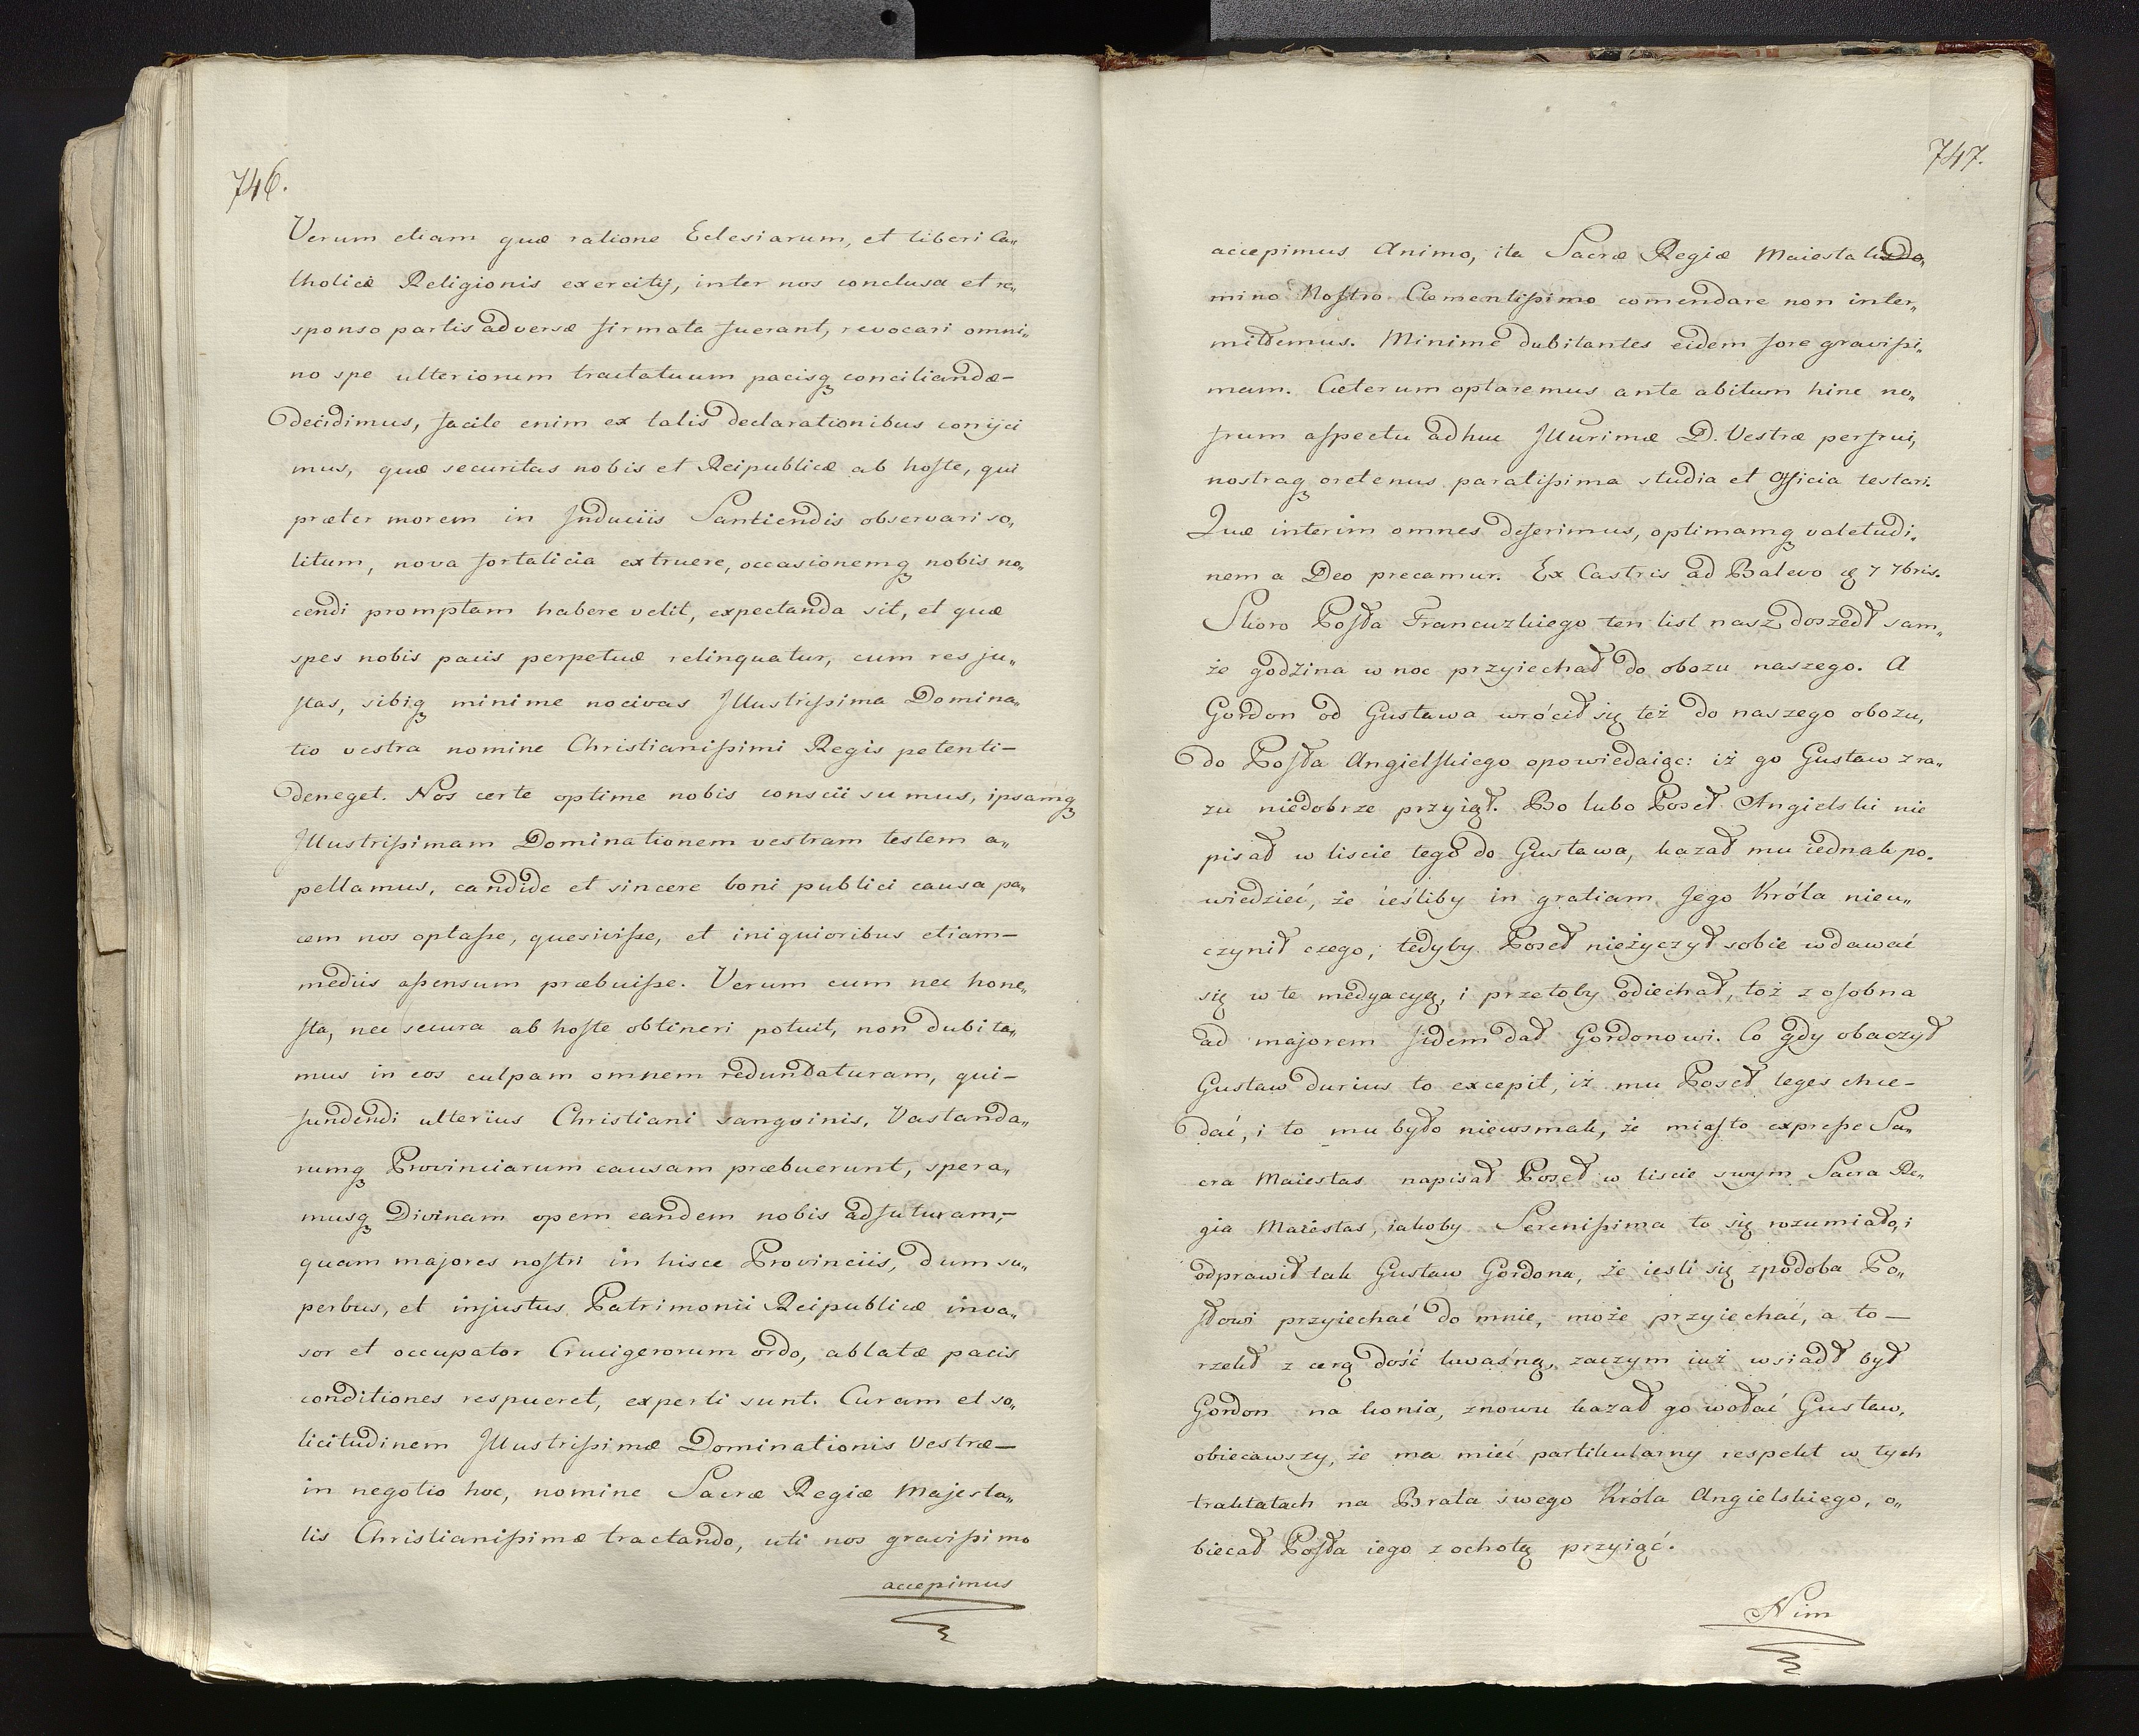 746.
Verum etiam quæ ratione Eclesiarum, et liberi Ca„
tholicæ Religionis exercitÿ, inter nos conclusa et re„
sponso partis adversæ firmata fuerant, revocari omni„
no spe ulteriorum tractatuum pacisqꝫ conciliandæ–
decidimus, facile enim ex talis declarationibus conijci
mus, quæ securitas nobis et Reipublicæ ab hoſte, qui
præter morem in Induciis Santiendis observari so„
litum, nova fortalicia extruere, occasionemqꝫ nobis no„
cendi promptam habere velit, expectanda sit, et quæ
spes nobis pacis perpetuæ relinquatur, cum res ju„
ſtas, sibiqꝫ minime nocivas Illustriſsima Domina„
tio vestra nomine Christianiſsimi Regis petenti–
deneget. Nos certe optime nobis conscii sumus, ipsamqꝫ
Illustriſsimam Dominationem vestram testem a„
pellamus, candide et sincere boni publici causa pa„
cem nos optaſse, quesiviſse, et iniquioribus etiam–
mediis aſsensum præbuiſse. Verum cum nec hone„
ſta, nec secura ab hoſte obtineri potuit, non dubita„
mus in eos culpam omnem redundaturam, qui–
fundendi ulterius Christiani sangvinis, Vastanda„
rumqꝫ Provinciarum causam præbuerunt, spera„
musqꝫ Divinam opem eandem nobis adfuturam,–
quam majores noſtri in hisce Provinciis, dum su„
perbus, et injustus Patrimonii Reipublicæ inva„
sor et occupator Crucigerorum ordo, ablatæ pacis
conditiones respueret, experti sunt. Curam et so„
licitudinem Illustriſsimæ Dominationis Vestræ–
in negotio hoc, nomine Sacræ Regiæ Majesta„
tis Christianiſsimæ tractando, uti nos graviſsimo
accepimus
747.
accepimus Animo, ita Sacræ Regiæ Maiestati Do„
mino Noſtro Clementiſsimo com̄endare non inter„
mittemus. Minimè dubitantes eidem fore graviſsi„
mam. Cæterum optaremus ante abitum hinc no„
ſrum aſpectu adhuc Illurimæ D. Vestræ perfrui,
nostraqꝫ oretenus paratiſsima studia et officia testari.
Quæ interim omnes deferimus, optimamqꝫ valetudi„
nem a Deo precamur. Ex Castris ad Balevo 7 7bris.
Skoro Poſła Francuzkiego ten list nasz doszedł sam„
że godzina w noc przyiechał do obozu naszego. A
Gordon od Gustawa wrócił się też do naszego obozu,
do Poſła Angielſkiego opowiedaiąc: iż go Gustaw zra„
zu niedobrze przyiął. Bo lubo Poseł Angielski nie
pisał w liscie tego do Gustawa, kazał mu iednak po„
wiedzieć, że ieśliby in gratiam Jego Króla nieu„
czynił czego, tedyby Poseł nieżyczył sobie wdawać
się w te medyacyę, i przetoby odiechał, toż z oſobna
ad majorem fidem dał Gordonowi. Co gdy obaczył
Gustaw durius to excepit, iż mu Poseł leges chce–
dać, i to mu było niewsmak, że miaſto expreſse Sa„
cra Maiestas napisał Poseł w liscie swym Sacra Re„
gia Maiestas, iakoby Sereniſsima to się rozumiało, i
odprawił tak Gustaw Gordona, że iesli się zpodoba Po„
ſłowi przyiechać do mnie, może przyiechać, a to–
rzekł z cerą dość kwaśną, zaczym iuż wsiadł był
Gordon na konia, znowu kazał go wołać Gustaw,
obiecawszy, że ma mieć partikularny respekt w tych
traktatach na Brata swego Króla Angielskiego, o„
biecał Poſła iego z ochotą przyiąć.
Nim